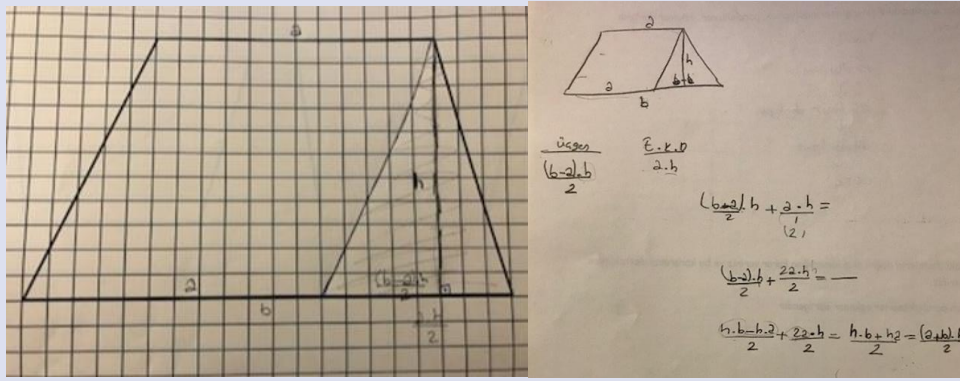 a
h
a
(b-a).h
2
b
a.h
2
a
h
b-a
a
b
üçgen
(b-a).h
2
P.K.D
a.h
(b-a).h/2 + a.h/1 =
(2)
(b-a).h/2 + 2a.h/2 = —
h.b-h.a/2 + 2a.h/2 = h.b+ha/2 = (a+b).h/2